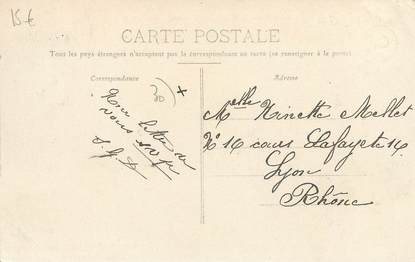 15 €
CARTE POSTALE
Tous les pays étrangers n'acceptent pas la correspondance au recto (se renseigner à la poste).
Correspondance
Adresse
30
Mlle Ninette Mellet
N° 16 cours Lafayette 16
Lyon
Rhône
lettre de
vous